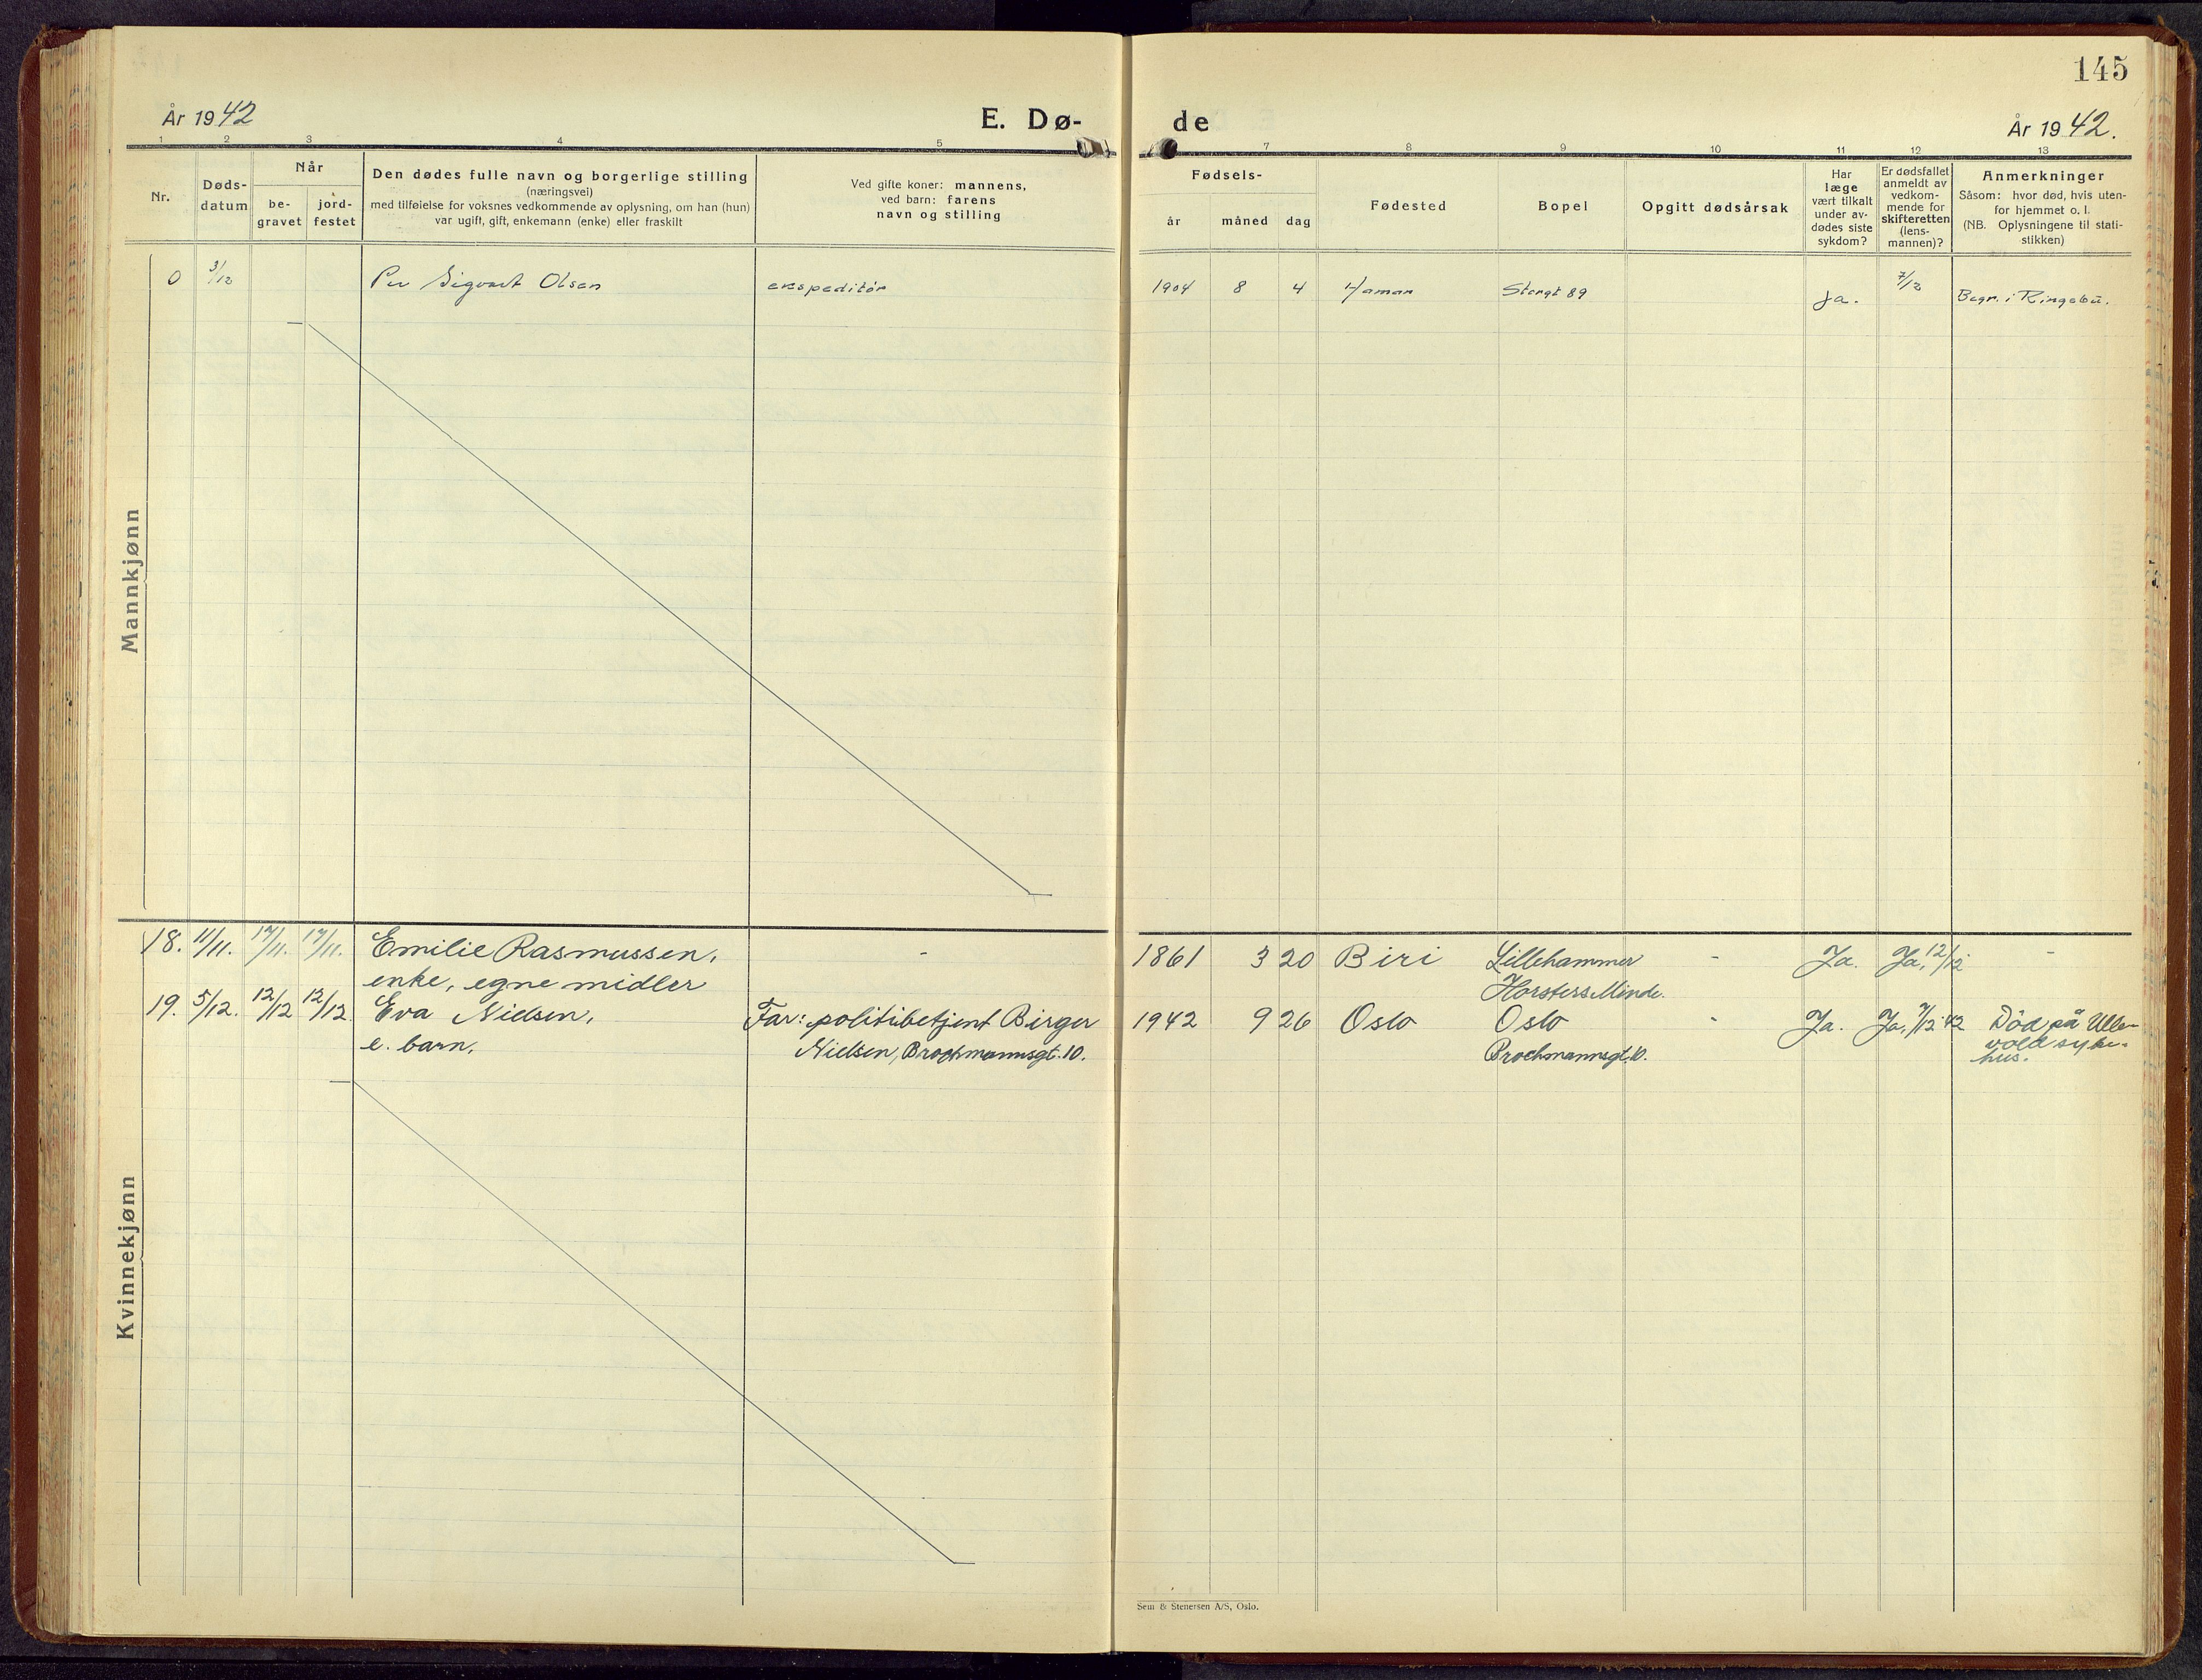 145
År 1942
E. Dø-
de
År 1942.
1 2 3 4 5
7 8 9 10 11 12 13
Nr.
Døds-
datum
Når
be-
gravet
jord-
festet
Den dødes fulle navn og borgerlige stilling
(næringsvei)
med tilføielse for voksnes vedkommende av oplysning, om han (hun)
var ugift, gift, enkemann (enke) eller fraskilt
Ved gifte koner: mannens,
ved barn: farens
navn og stilling
Fødsels-
år måned dag
Fødested
Bopel
Opgitt dødsårsak
Har
læge
vært tilkalt
under av-
dødes siste
sykdom?
Er dødsfallet
anmeldt av
vedkom-
mende for
skifteretten
(lens-
mannen)?
Anmerkninger
Såsom: hvor død, hvis uten-
for hjemmet o. l.
(NB. Oplysningene til stati-
stikken)
Mannkjønn
0 3/12 Per Sigvart Olsen ekspeditør 1904 8 4 Hamar Storgt 89 Ja. 7/12 Begr. i Ringebu.
Kvinnekjønn
18. 11/11. 17/11. 17/11. Emilie Rasmussen, - 1861 3 20 Biri Lillehammer - Ja. Ja, 12/12 -
enke, egne midler Horsters Minde.
19. 5/12. 12/12 12/12 Eva Nielsen, Far: politibetjent Birger 1942 9 26 Oslo Oslo - Ja. Ja, 7/12 42 Död på Ulle-
e. barn. Nielsen, Brochmannsgt. 10. Brochmannsgt. 10. vold syke-
hus.
Sem & Stenersen A/S, Oslo.